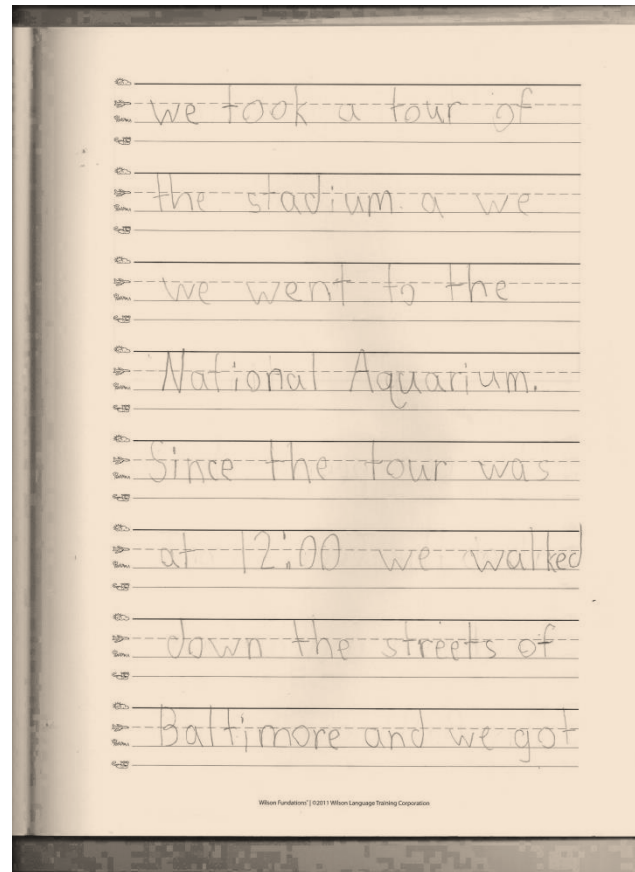 we took a tour of
the stadium. a we
we went to the
National Aquarium.
Since the tour was
at 12:00 we walked
down the streets of
Baltimore and we got
Wilson Fundations® | ©2011 Wilson Language Training Corporation